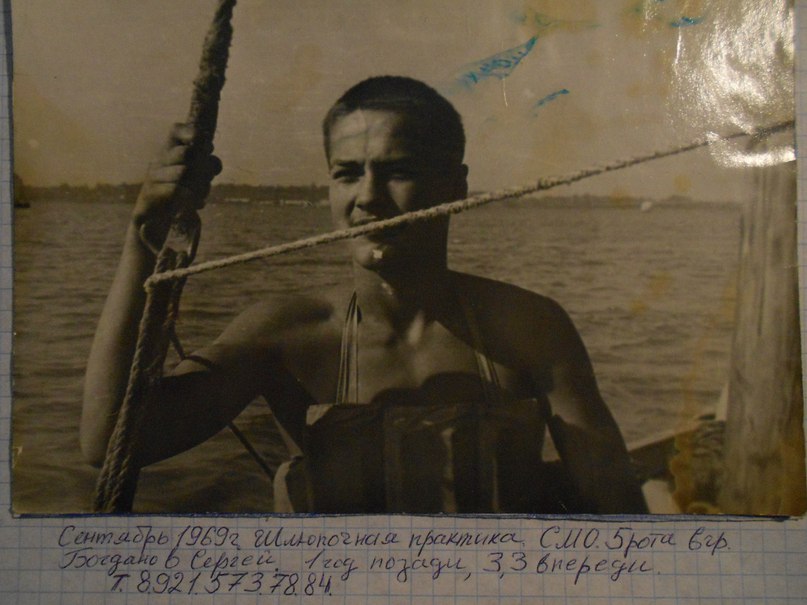 Сентябрь 1969г Шлюпочная практика. СМО. 5рота вгр.
Богданов Сергей. 1 год позади, 3,3 впереди.
Т. 8.921.573.78.84.